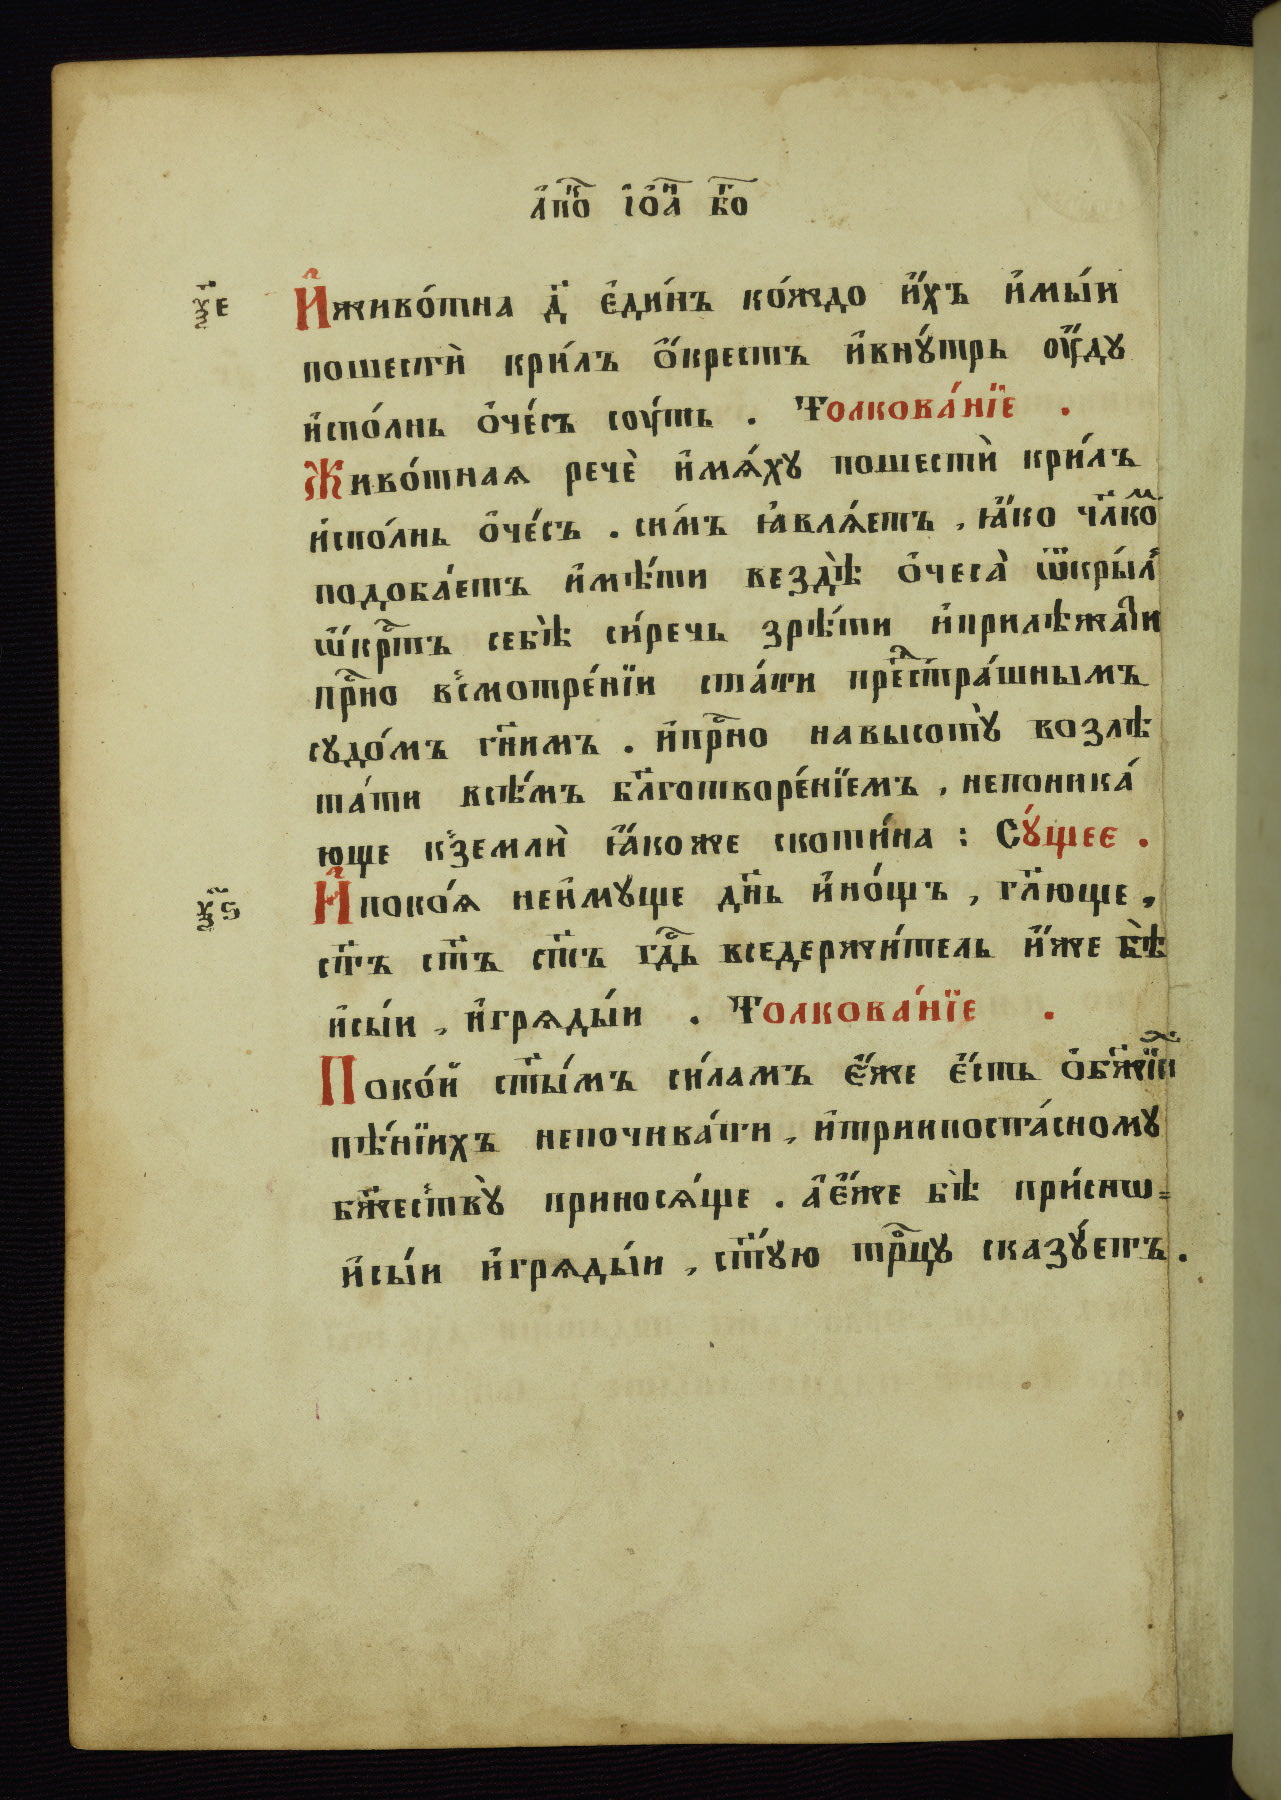 А҆пⷭ҇о і҆ѻ҆аⷩ҇ бг҃о
ѯ҃е
И҆живо́тна д҃ є҆ди́нъ ко́ждо и҆́хъ и҆мы́и
пошестѝ кри́лъ ѻ҆́крестъ и҆внꙋ́трь ѻу҆́дꙋ
и҆спо́лнь ѻ҆че́съ соу́ть . Толкова́нїе .
Живо́тнаѧ речѐ и҆мѧ́хꙋ пошестѝ кри́лъ
и҆спо́лнь ѻ҆че́съ . си́мъ ꙗ҆влѧ́етъ , ꙗ҆́ко чл҃комⷨ
подоба́етъ и҆мѣ́ти вездѣ̀ ѻ҆чеса̀ ѿкры́лъ
ѡ҆́крⷭ҇тъ себѣ̀ си́речь зрѣ́ти и҆прилѣжа́ти
прⷭ҇но в̾смотре́нїи ста́ти преⷣстра́шнымъ
сꙋдо́мъ гн҃имъ . и҆прⷭ҇но навысотꙋ̀ возлѣ
та́ти всѣ́мъ бл҃готворе́нїемъ , непоника́
юще к̾землѝ ꙗ҆́коже скоти́на : Сꙋ́щее .
ѯ҃ѕ
И҆поко́ѧ неи҆мꙋще дн҃ь и҆но́щъ , гл҃юще ,
ст҃ъ ст҃ъ ст҃ъ гдⷭ҇ь вседержи́тель и҆́же бѣ̀
и҆сы́и , и҆грѧды́и . Толкова́нїе .
Поко́й ст҃ы́мъ си́ламъ є҆́же є҆́сть ѻ҆бж҃їиⷯ
пѣ́нїихъ непочива́ти , и҆трииποста́сномꙋ
бж҃ест̾вꙋ̀ приносѧ́ще . а҆є҆́же бѣ̀ при́снѡ=
и҆сы́и и҆грѧды́и , ст҃ꙋ́ю трⷪ҇цꙋ сказꙋ́етъ .